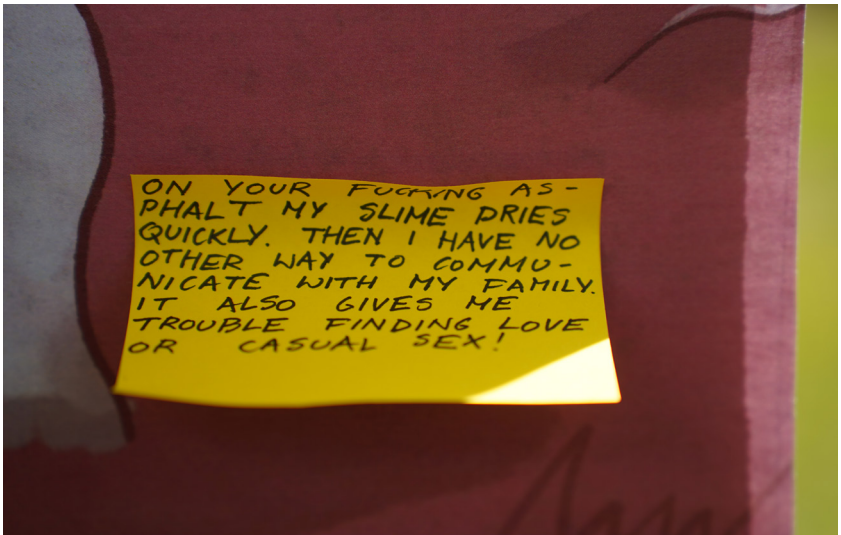 ON YOUR FUCKING AS-
PHALT MY SLIME DRIES
QUICKLY. THEN I HAVE NO
OTHER WAY TO COMMU-
NICATE WITH MY FAMILY.
IT ALSO GIVES ME
TROUBLE FINDING LOVE
OR CASUAL SEX!